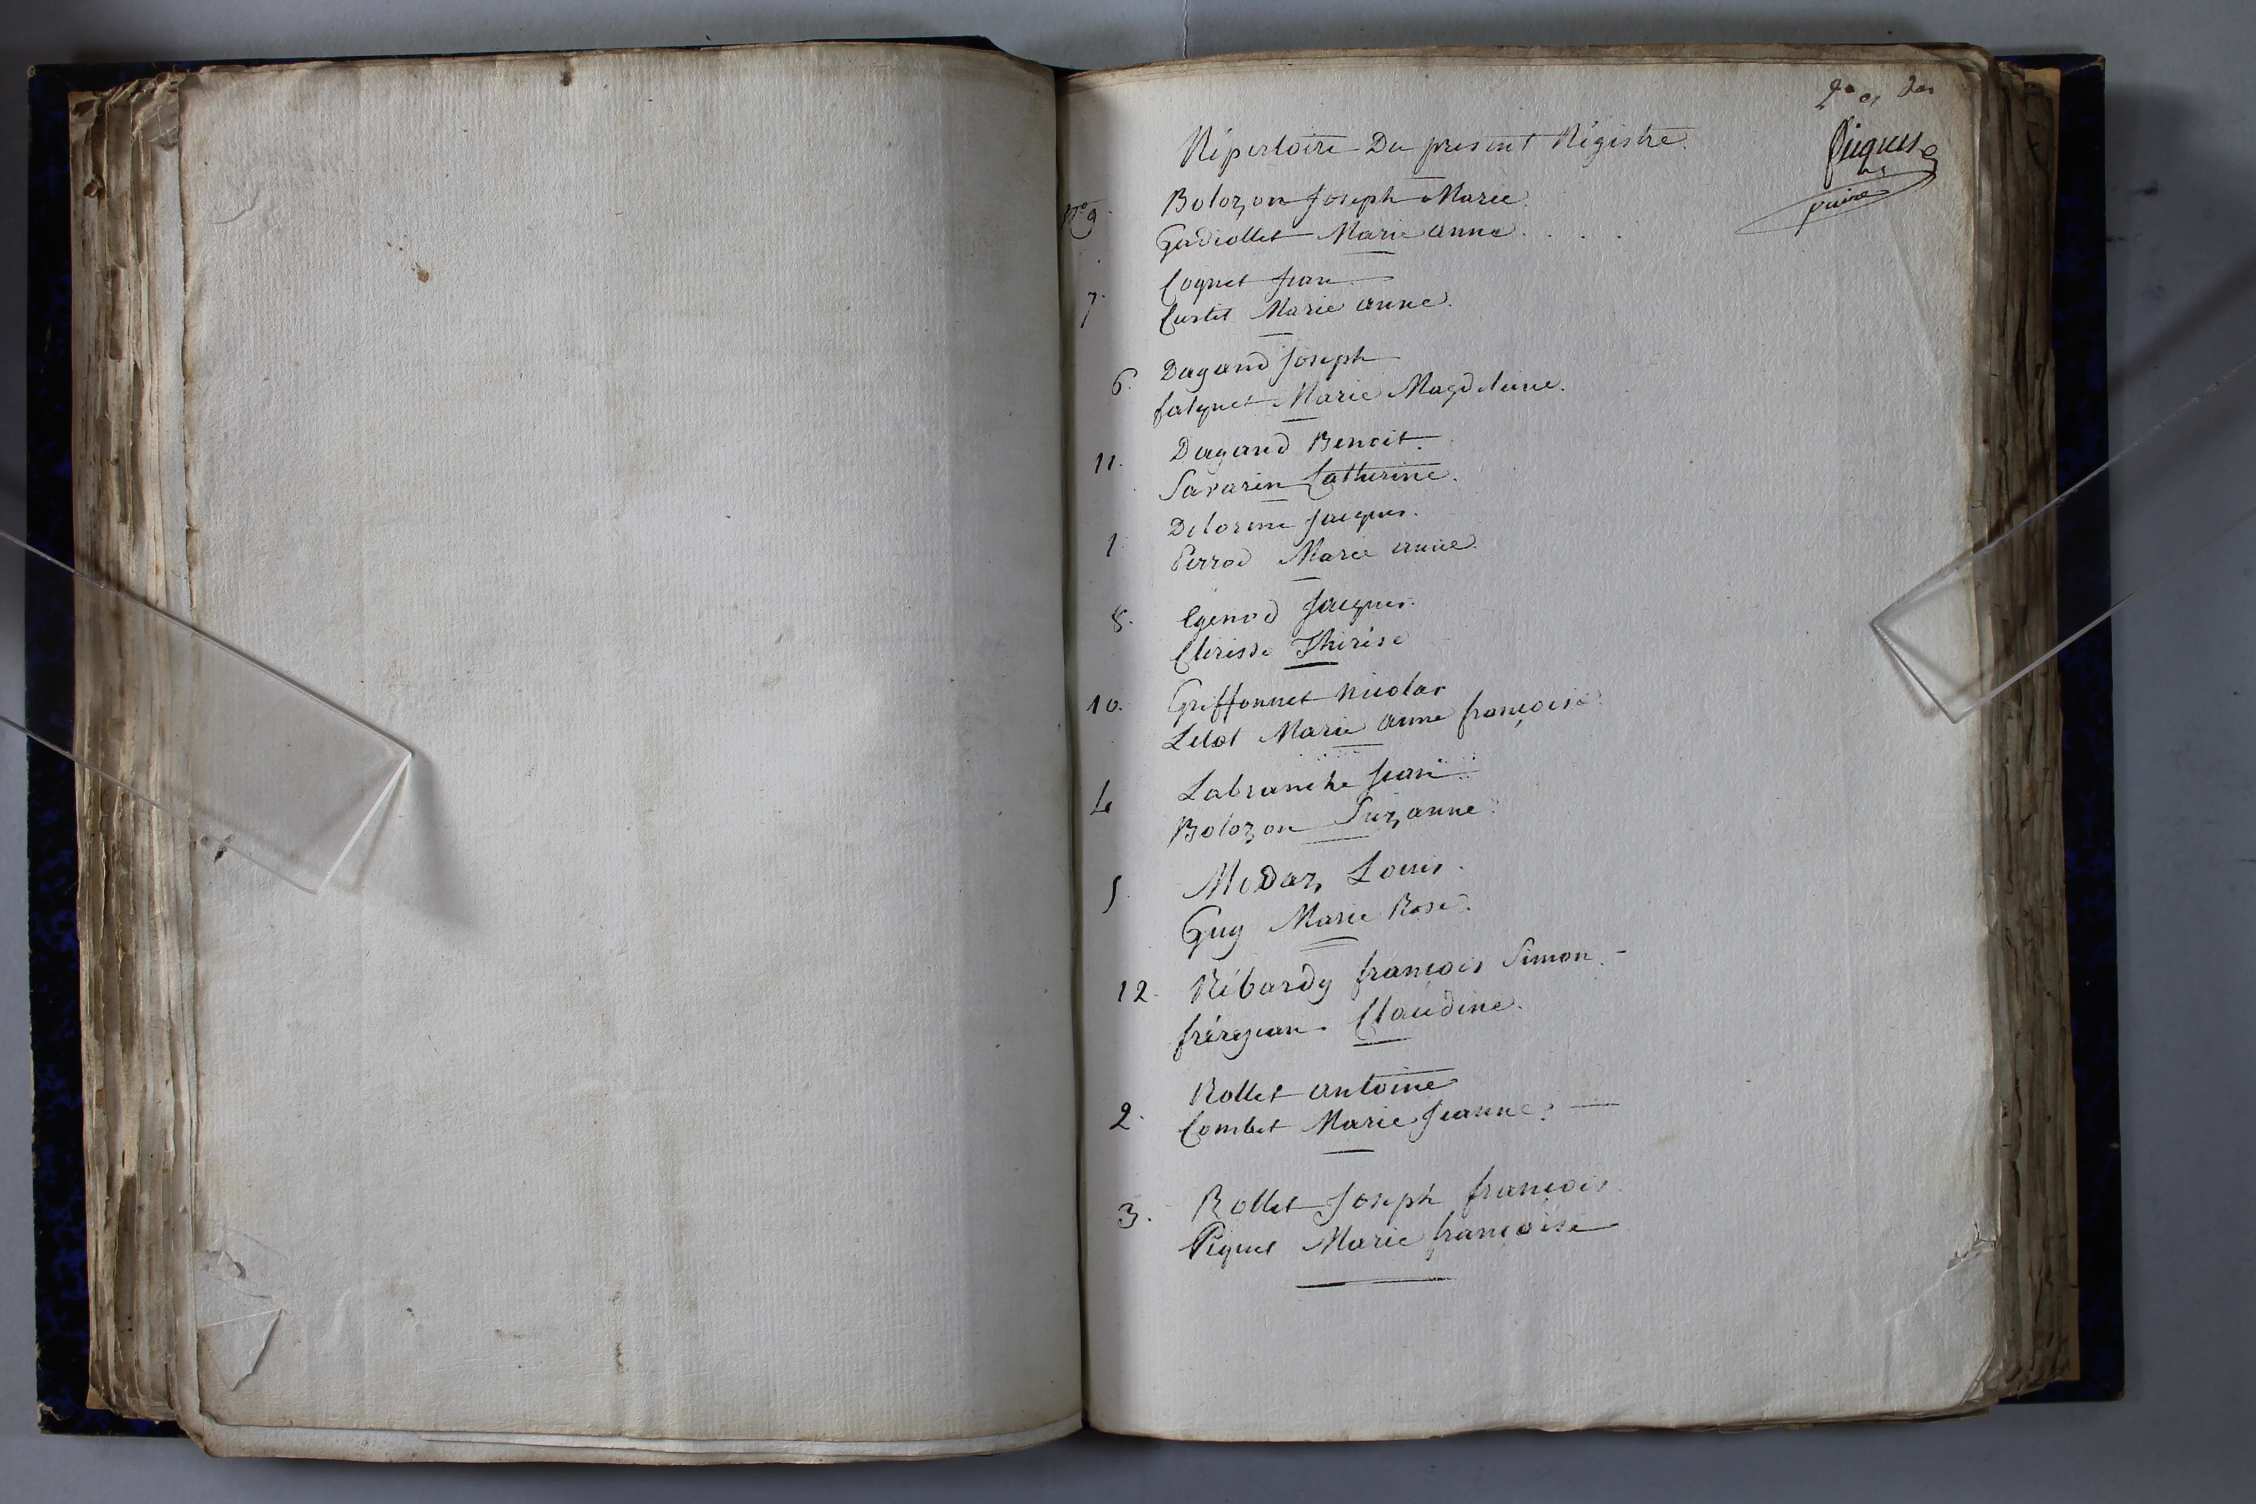 Répertoire Du present Régistre.
N° 9. Bolozon Joseph Marie.
Gudiollet Marie anne . . . .
7. Coqnet Jean
Curtet Marie anne.
6. Dagand Joseph
falquet Marie Magdelaine.
11. Dagand Benoit.
Savarin Catherine.
1. Delorme Jacques.
Perrod Marie anne.
8. Egenod Jacques.
Clerisse Thérèse
10. Griffonnet Nicolas
Marie anne françoise
4 Labranche Jean
Bolozon Suzanne.
5. Modaz Louis.
Guy Marie Rose.
12. Rébardy françois Simon. -
frérejean. Claudine.
Rollet antoine
2. Combet Marie Jeanne. —
3. Rollet Joseph françois
Piquet Marie françoise